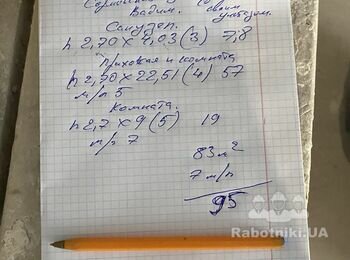 Вадим.
Санузел.
h 2,70 x 4,03 (3) 7,8
Прихожая и комната
h 2,70 x 22,51 (4) 57
м/п 5
Комната.
h 2,7 x 9 (5) 19
м/п 7
83 м²
7 м/п
95
Rabotniki.UA